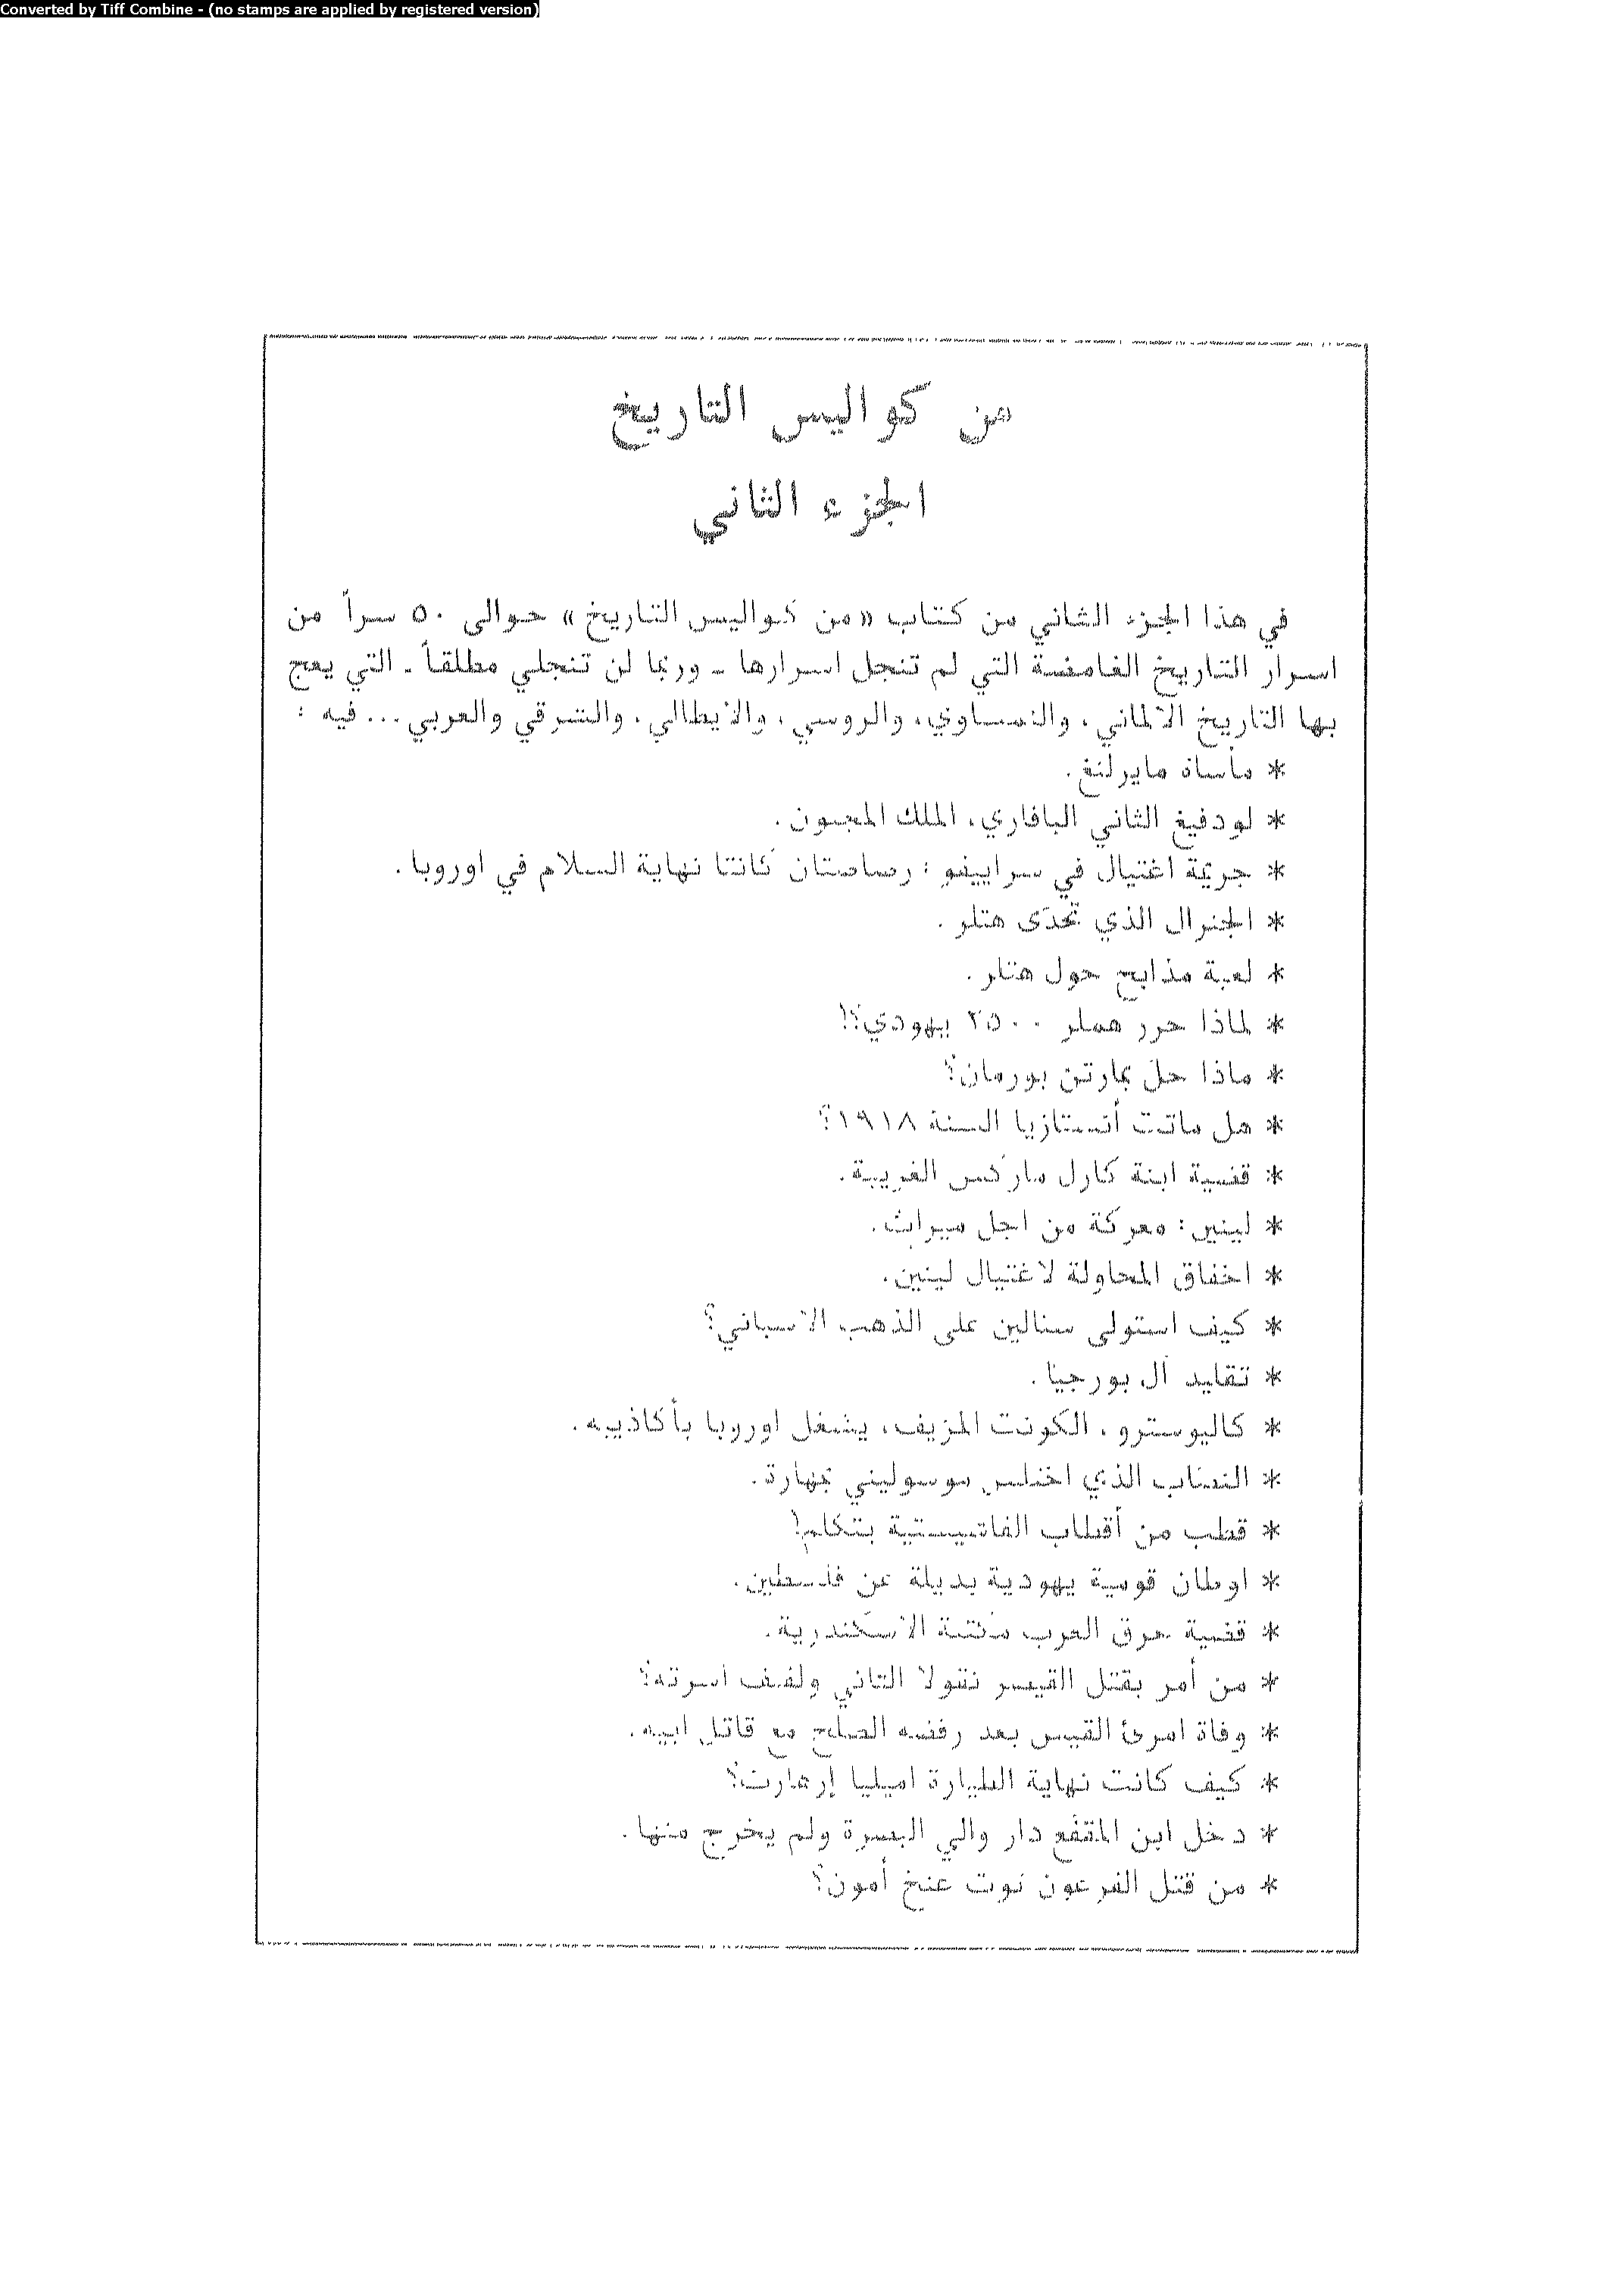 Converted by Tiff Combine - (no stamps are applied by registered version)
من كواليس التاريخ
الجزء الثاني
في هذا الجزء الثاني من كتاب «من كواليس التاريخ» حوالى ٥٠ سراً من
اسرار التاريخ الغامضة التي لم تنجل اسرارها - وربما لن تنجلي مطلقاً - التي يعج
بها التاريخ الالماني، والنمساوي، والروسي، والايطالي، والشرقي والعربي... فيه :
* مأساة مايرلنغ.
* لودفيغ الثاني البافاري، الملك المجنون.
* جريمة اغتيال في سراييفو : رصاصتان كانتا نهاية السلام في اوروبا.
* الجنرال الذي تحدّى هتلر.
* لعبة مذابح حول هتلر.
* لماذا حرر هملر ٢٥٠٠ يهودي؟!
* ماذا حلّ بمارتن بورمان؟
* هل ماتت أنستازيا السنة ١٩١٨؟
* قضية ابنة كارل ماركس الغريبة.
* لينين: معركة من اجل ميراث.
* اخفاق المحاولة لاغتيال لينين.
* كيف استولى ستالين على الذهب الاسباني؟
* تقليد آل بورجيا.
* كاليوسترو، الكونت المزيف، يشغل اوروبا بأكاذيبه.
* النصّاب الذي اختلس موسوليني بمهارة.
* قطب من أقطاب الفاشيستية يتكلم!
* اوطان قومية يهودية بديلة عن فلسطين.
* قضية حرق العرب مكتبة الاسكندرية.
* من أمر بقتل القيصر نقولا الثاني ولفيف اسرته؟
* وفاة امرئ القيس بعد رفضه الصلح مع قاتل ابيه.
* كيف كانت نهاية الطيارة اميليا إرهارت؟
* دخل ابن المقفّع دار والي البصرة ولم يخرج منها.
* من قتل الفرعون توت عنخ أمون؟